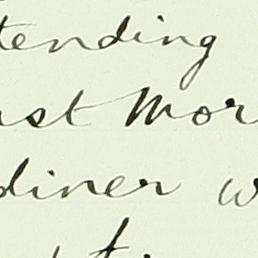 tending
ast Mor
diner w